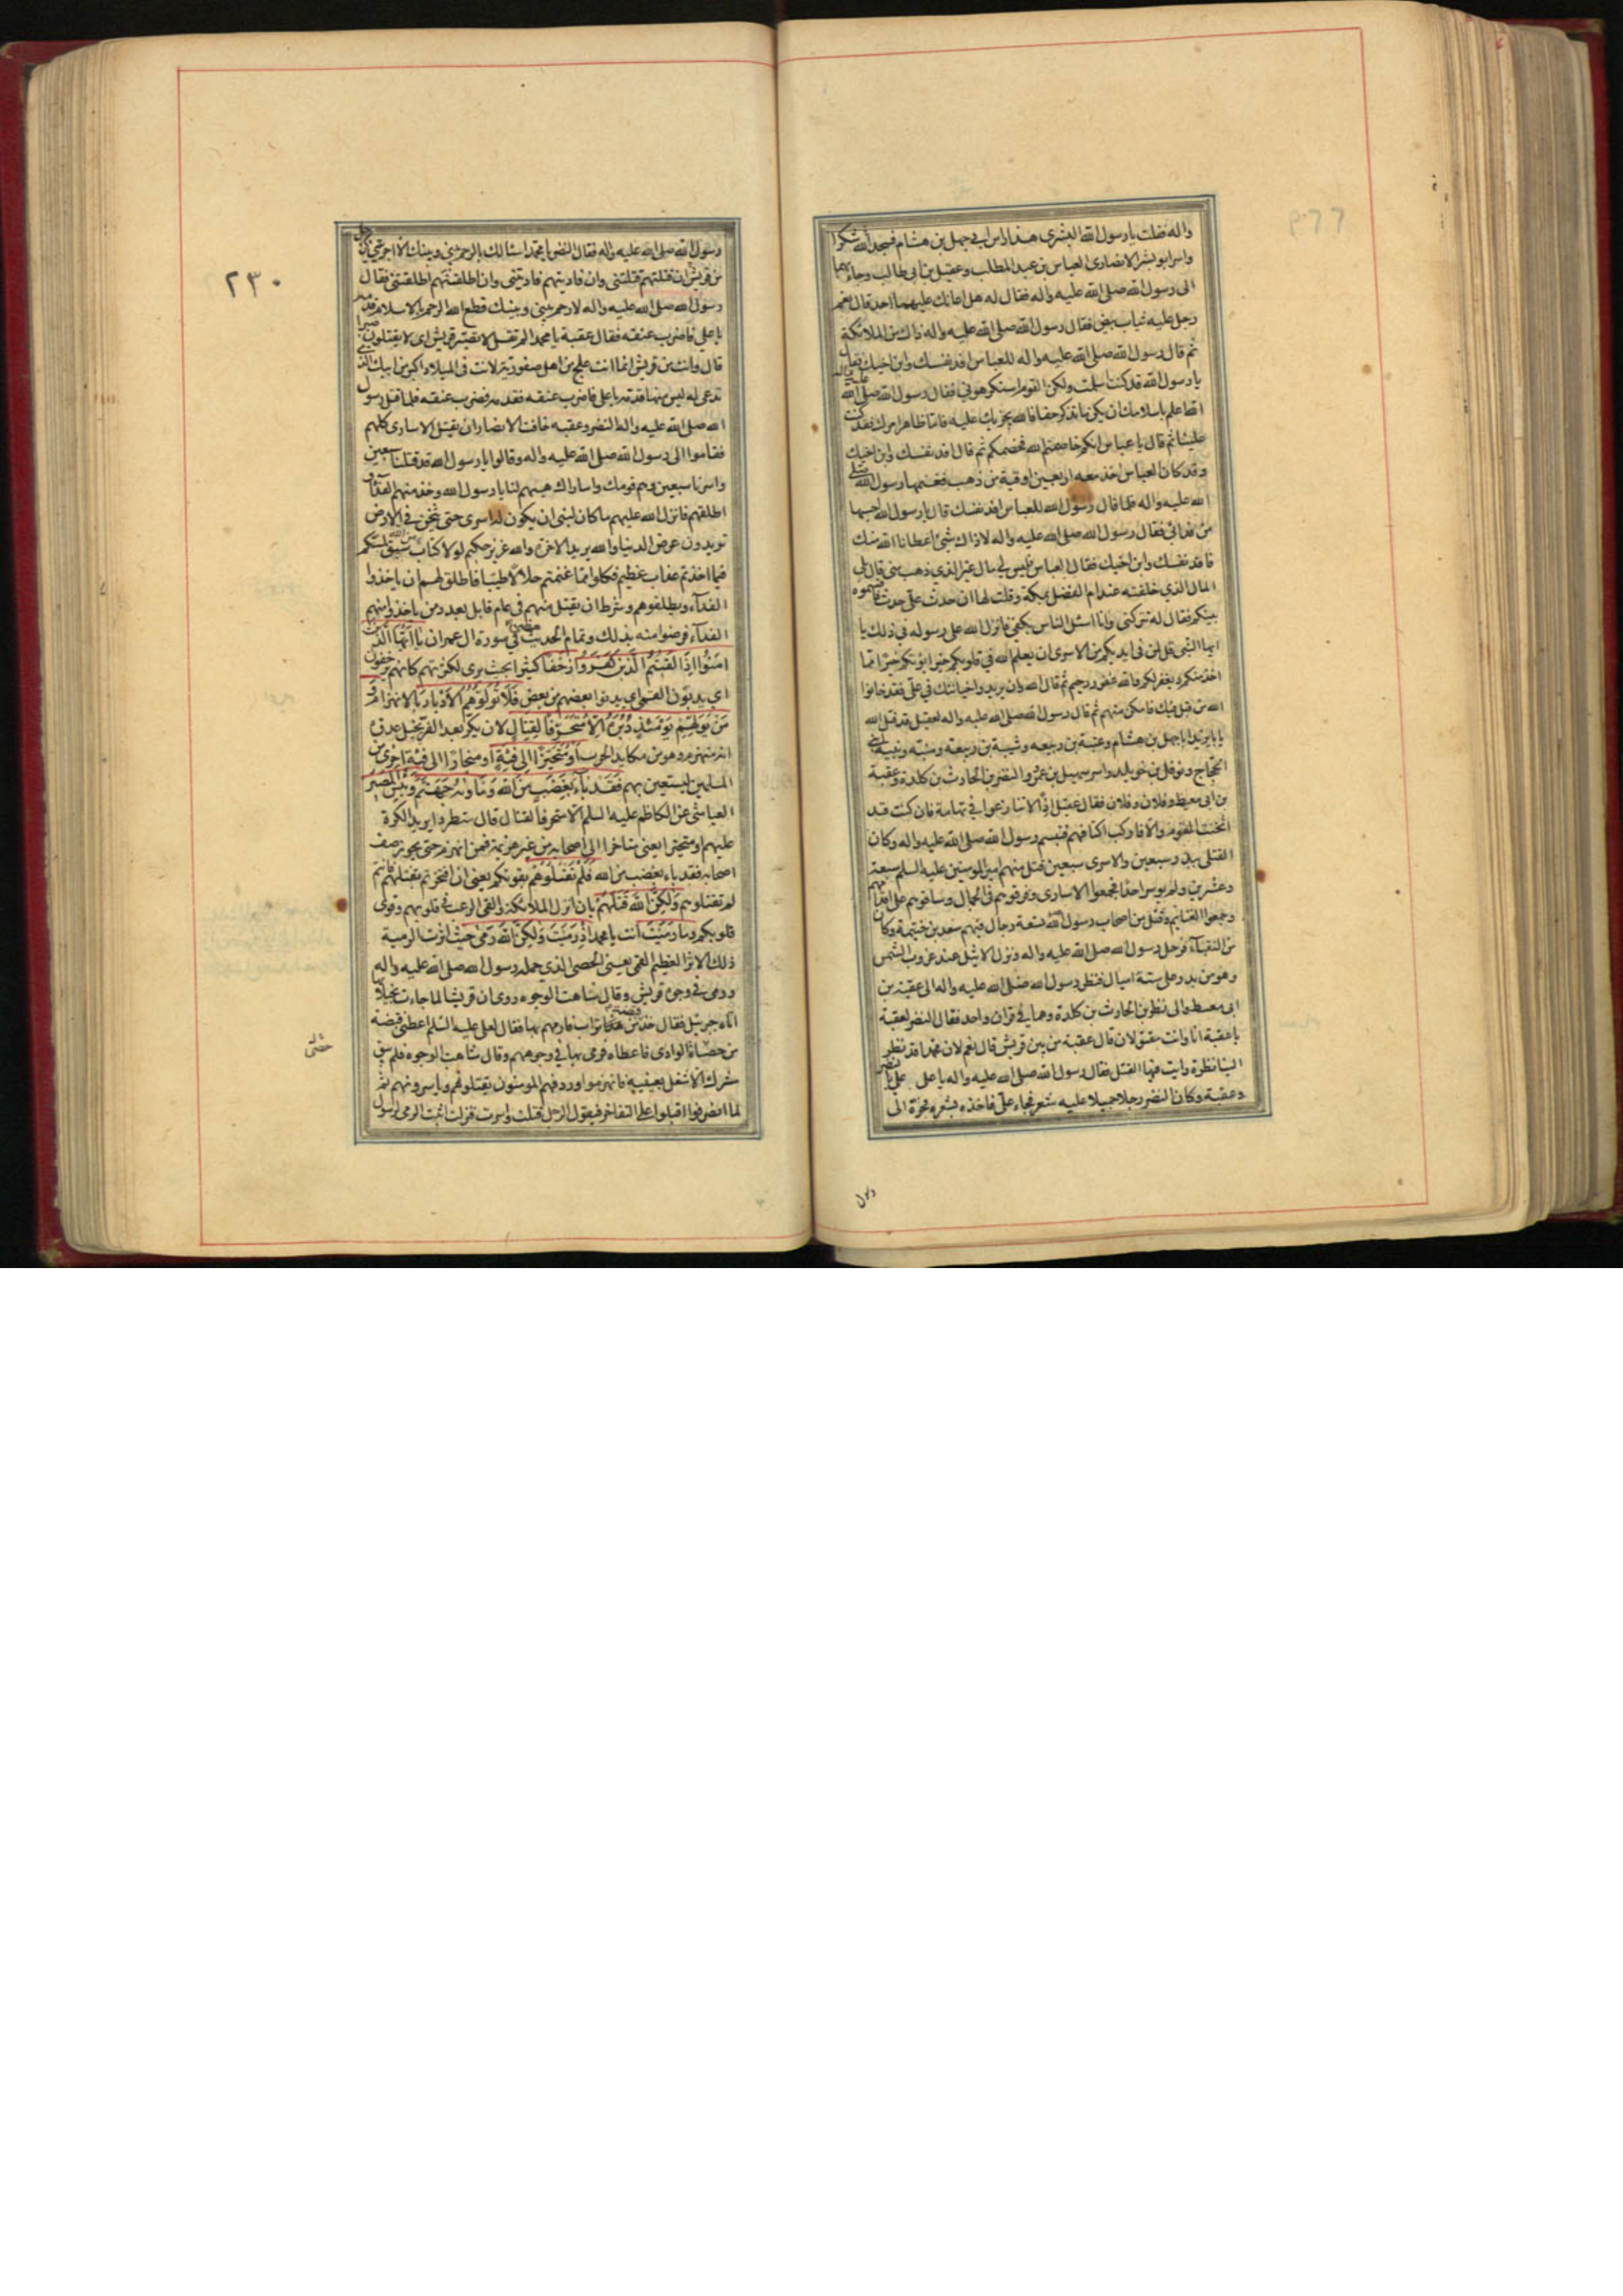 واله فقلت يا رسول الله البشرى هذا راس ابي جهل بن هشام فسجد لله شكرا
واسر ابو بشر الانصارى العباس بن عبد المطلب وعقيل بن ابى طالب وجاء بهما
الى رسول الله صلى الله عليه واله فقال له هل اعانك عليهما احد قال نعم
رجل عليه ثياب بيض فقال رسول الله صلى الله عليه واله ذاك من الملائكة
ثم قال رسول الله صلى الله عليه واله للعباس افد نفسك وابن اخيك فقال
يا رسول الله قد كنت اسلمت ولكن القوم استكرهوني فقال رسول الله صلى الله عليه واله
الله اعلم باسلامك ان يكن ما تذكر حقا فالله يجزيك عليه فاما ظاهر امرك فقد كنت
علينا ثم قال يا عباس انكم خاصمتم الله فخصمكم ثم قال افد نفسك وابن اخيك
وقد كان العباس اخذ معه اربعين اوقية من ذهب فغنمها رسول الله صلى
الله عليه واله فلما قال رسول الله للعباس افد نفسك قال يا رسول الله احسبها
من فدائي فقال رسول الله صلى الله عليه واله لا ذاك شئ اعطانا الله منك
فافد نفسك وابن اخيك فقال العباس فليس لي مال غير الذي ذهب منى قال بلى
المال الذي خلفته عند ام الفضل بمكة وقلت لها ان حدث على حدث فاقسموه
بينكم فقال له تتركنى وانا اسئل الناس بكفي فانزل الله على رسوله في ذلك يا
ايها النبى قل لمن فى ايديكم من الاسرى ان يعلم الله في قلوبكم خيرا يؤتكم خيرا مما
اخذ منكم ويغفر لكم والله غفور رحيم ثم قال الله وان يريدوا خيانتك في على فقد خانوا
الله من قبل فيك فامكن منهم ثم قال رسول الله صلى الله عليه واله لعقيل قد قتل الله
يا ابا يزيد ابا جهل بن هشام وعتبة بن ربيعه وشيبة بن ربيعة ومنبه ونبيه ابنى
الحجاج ونوفل بن خويلد واسر سهيل بن عمرو والنضر بن الحارث بن كلدة وعقبة
بن ابى معيط وفلان وفلان فقال عقيل اذا لا تنازعوا في تهامة فان كنت قد
اثخنت القوم والا فاركب اكتافهم فتبسم رسول الله صلى الله عليه واله وكان
القتلى ببدر سبعين والاسرى سبعين قتل منهم امير المومنين عليه السلم سبعة
وعشرين ولم يوسر احدا فجمعوا الاسارى وقرنوهم في الحبال وساقوهم على اقدامهم
وجمعوا الغنايم وقتل من اصحاب رسول الله تسعة رجال فيهم سعد بن خيثمة وكان
من النقباء فرحل رسول الله صلى الله عليه واله ونزل الاثيل عند غروب الشمس
وهو من بدر وعلى ستة اميال فنظر رسول الله صلى الله عليه واله الى عقبة بن
ابى معيط والى نضر بن الحارث بن كلدة وهما في قران واحد فقال النضر لعقبة
يا عقبة انا وانت مقتولان قال عقبة من بين قريش قال نعم لان محمدا قد نظر
الينا نظرة رايت فيها القتل فقال رسول الله صلى الله عليه واله يا على على بالنضر
وعقبة وكان النضر رجلا جميلا عليه شعر فجاء على فاخذه بشعره فجره الى
رسول
٢٣٠
رسول الله صلى الله عليه واله فقال النضر يا محمد اسئالك بالرحم بيني وبينك الا اجريتني كرجل
من قريش ان قتلتهم قتلتنى وان فاديتهم فاديتنى وان اطلقتهم اطلقتنى فقال
رسول الله صلى الله عليه واله لا رحم بينى وبينك قطع الله الرحم بالاسلام قدمه
يا علي فاضرب عنقه فقال عقبة يا محمد الم تقل لا تصبر قريش اى لا يقتلون صبرا
قال وانت من قريش انما انت علج من اهل صفورية لانت فى الميلاد اكبر من ابيك الذي
تدعى له ليس منها قدمه يا على فاضرب عنقه فقدمه فضرب عنقه فلما قتل رسول
الله صلى الله عليه واله النضر وعقبه خافت الانصار ان يقتل الاسارى كلهم
فقاموا الى رسول الله صلى الله عليه واله وقالوا يا رسول الله قد قتلنا سبعين
واسرنا سبعين وهم قومك واساراك هبهم لنا يا رسول الله وخذ منهم الفداء و
اطلقهم فانزل الله عليهم ما كان لنبى ان يكون له اسرى حتى يثخن في الارض
تريدون عرض الدنيا والله يريد الاخرة والله عزيز حكيم لولا كتاب من الله سبق لمسكم
فيما اخذتم عذاب عظيم فكلوا مما غنمتم حلالا طيبا فاطلق لهم ان ياخذوا
الفداء ويطلقوهم وشرط ان يقتل منهم في عام قابل بعدد من ياخذوا منهم
الفداء فرضوا منه بذلك وتمام الحديث مضى في سورة ال عمران يا ايها الذين
امنوا اذا لقيتم الذين كفروا زحفا كثيرا بحيث يرى لكثرتهم كانهم يزحفون
اى يدبون الصبي اى يدنوا بعضهم من بعض فلا تولوهم الادبار بالانهزام و
من يولهم يومئذ دبره الا متحرفا لقتال لان يكر بعد الفر يخيل عدوه
انه منهزم وهو من مكايد الحرب او متحيزا الى فئة او منحازا الى فئة اخرى من
المسلمين ليستعين بهم فقد باء بغضب من الله وماواه جهنم وبئس المصير
العياشى عن الكاظم عليه السلم الا متحرفا لقتال قال متطردا يريد الكرة
عليهم او متحيزا يعنى متاخرا الى اصحابه من غير هزيمة فمن انهزم حتى يجوز صف
اصحابه فقد باء بغضب من الله فلم تقتلوهم بقوتكم يعنى ان افتخرتم بقتلهم فانتم
لم تقتلوهم ولكن الله قتلهم بان انزل الملائكة والقى الرعب فى قلوبهم وقوى
قلوبكم وما رميت انت يا محمد اذ رميت ولكن الله رمى حيث اثرت الرمية
ذلك الاثر العظيم القمى يعنى الحصى الذي حمله رسول الله صلى الله عليه واله
ورمى في وجوه قريش وقال شاهت الوجوه روى ان قريشا لما جاءت بخيلائها
اتاه جبرئيل فقال خذ قبضة من تراب فارمهم بها فقال لعلي عليه السلم اعطنى قبضة
من حصباء الوادى فاعطاه فرمى بها في وجوههم وقال شاهت الوجوه فلم يبق
مشرك الا شغل بعينيه فانهزموا وردفهم المومنون يقتلونهم وياسرونهم ثم
لما انصرفوا اقبلوا على التفاخر فيقول الرجل قتلت واسرت فنزلت اثبت الرمى لرسول